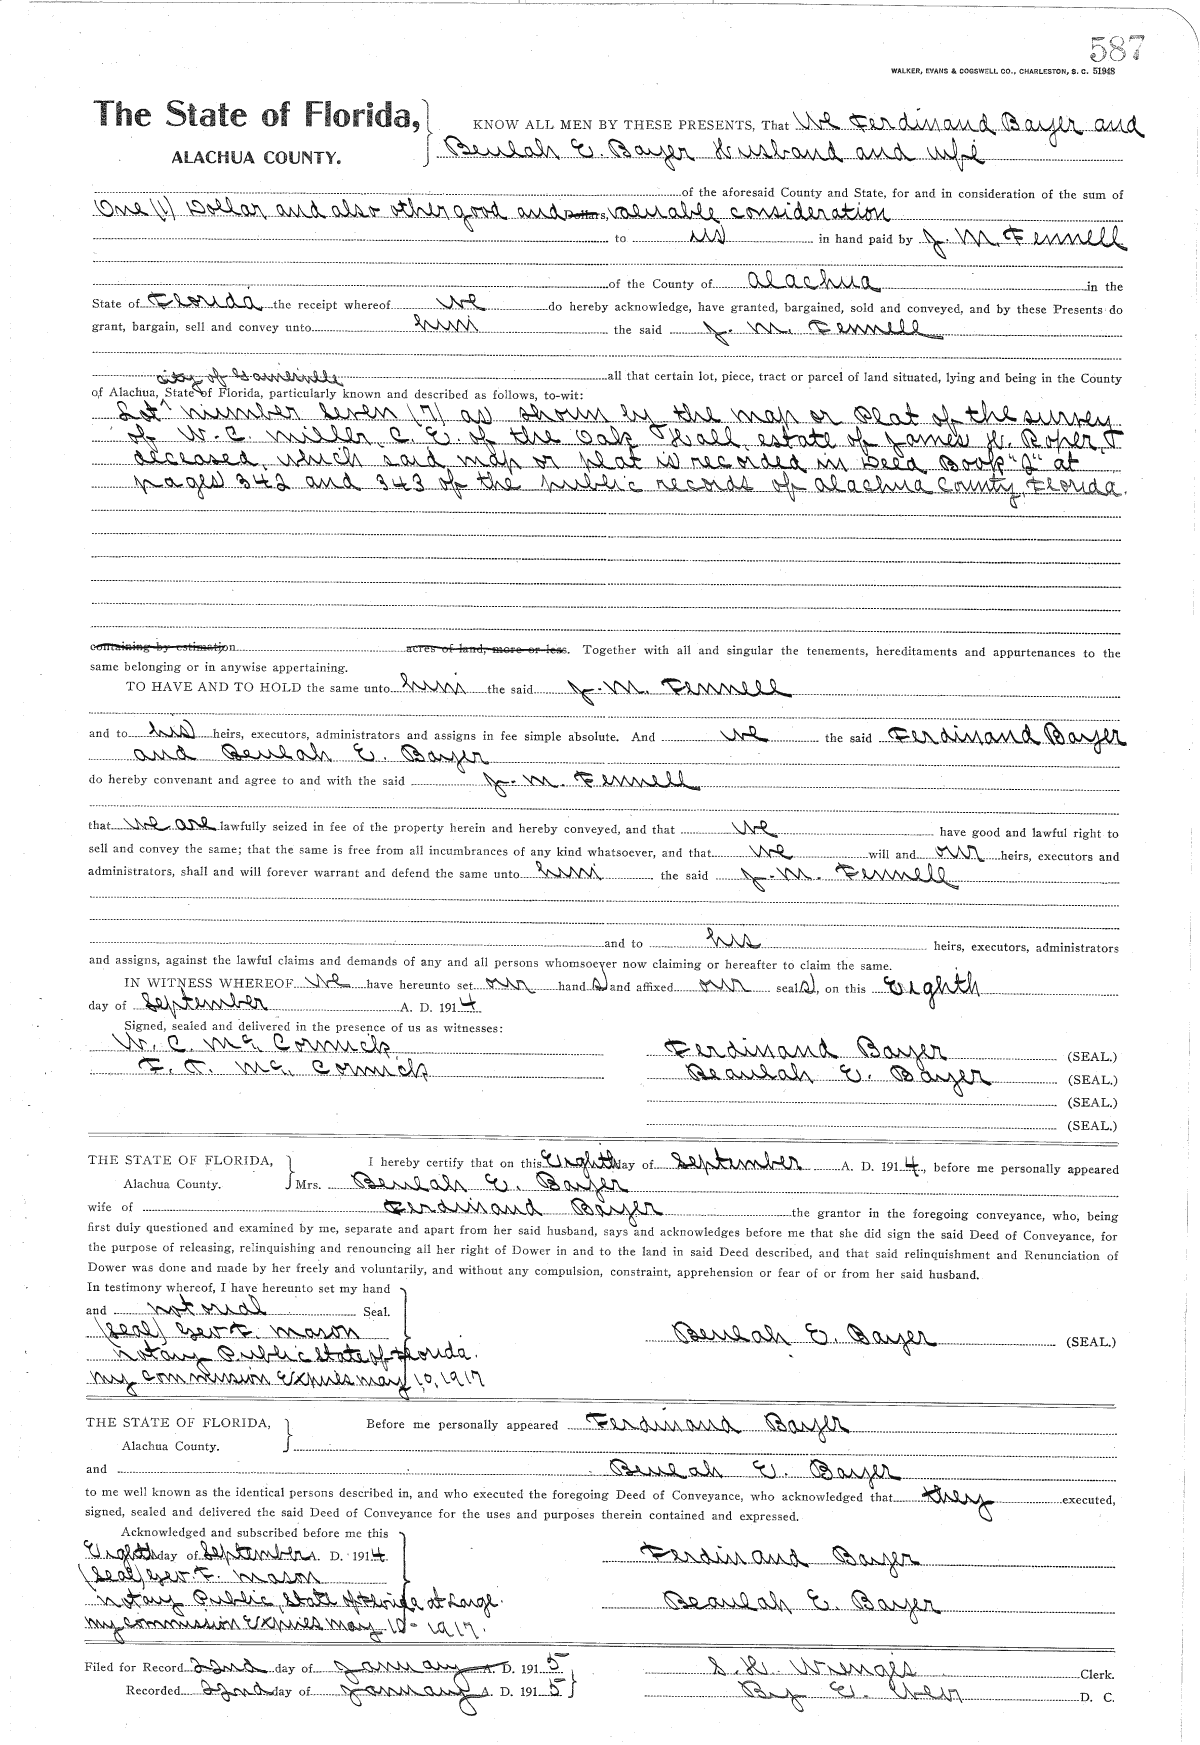 587
WALKER, EVANS & COGSWELL CO., CHARLESTON, S. C. 51948
The State of Florida,
ALACHUA COUNTY.
KNOW ALL MEN BY THESE PRESENTS, That We Ferdinand Bayer and
Beulah E. Bayer Husband and wife
of the aforesaid County and State, for and in consideration of the sum of
One (1) Dollar and also other good and valuable consideration
to us in hand paid by J. M. Fennell
of the County of Alachua in the
State of Florida the receipt whereof we do hereby acknowledge, have granted, bargained, sold and conveyed, and by these Presents do
grant, bargain, sell and convey unto him the said J. M. Fennell
all that certain lot, piece, tract or parcel of land situated, lying and being in the County
city of Gainesville
of Alachua, State of Florida, particularly known and described as follows, to-wit:
Lot number seven (7) as shown by the map or plat of the survey
of W. C. Miller, C. E. of the Oak Hall estate of James H. Roper,
deceased, which said map or plat is recorded in Deed Book "J" at
pages 342 and 343 of the public records of Alachua County, Florida.
containing by estimation acres of land, more or less. Together with all and singular the tenements, hereditaments and appurtenances to the
same belonging or in anywise appertaining.
TO HAVE AND TO HOLD the same unto him the said J. M. Fennell
and to his heirs, executors, administrators and assigns in fee simple absolute. And we the said Ferdinand Bayer
and Beulah E. Bayer
do hereby convenant and agree to and with the said J. M. Fennell
that we are lawfully seized in fee of the property herein and hereby conveyed, and that we have good and lawful right to
sell and convey the same; that the same is free from all incumbrances of any kind whatsoever, and that we will and our heirs, executors and
administrators, shall and will forever warrant and defend the same unto him the said J. M. Fennell
and to his heirs, executors, administrators
and assigns, against the lawful claims and demands of any and all persons whomsoever now claiming or hereafter to claim the same.
IN WITNESS WHEREOF We have hereunto set our hand s and affixed our seal s, on this Eighth
day of September A. D. 1914
Signed, sealed and delivered in the presence of us as witnesses:
W. C. McCormick
F. T. McCormick
Ferdinand Bayer (SEAL.)
Beaulah E. Bayer (SEAL.)
(SEAL.)
(SEAL.)
THE STATE OF FLORIDA,
Alachua County.
I hereby certify that on this Eighth day of September A. D. 1914, before me personally appeared
Mrs. Beulah E. Bayer
wife of Ferdinand Bayer the grantor in the foregoing conveyance, who, being
first duly questioned and examined by me, separate and apart from her said husband, says and acknowledges before me that she did sign the said Deed of Conveyance, for
the purpose of releasing, relinquishing and renouncing all her right of Dower in and to the land in said Deed described, and that said relinquishment and Renunciation of
Dower was done and made by her freely and voluntarily, and without any compulsion, constraint, apprehension or fear of or from her said husband.
In testimony whereof, I have hereunto set my hand
and notorial Seal.
(Seal) Geo F. Mason
Notary Public State of Florida.
My commission Expires May 10, 1917
Beulah E. Bayer (SEAL.)
THE STATE OF FLORIDA,
Alachua County.
Before me personally appeared Ferdinand Bayer
and Beulah E. Bayer
to me well known as the identical persons described in, and who executed the foregoing Deed of Conveyance, who acknowledged that they executed,
signed, sealed and delivered the said Deed of Conveyance for the uses and purposes therein contained and expressed.
Acknowledged and subscribed before me this
Eighth day of September A. D. 1914
(Seal) Geo F. Mason
Notary Public, State of Florida at Large.
My commission Expires May 10-1917.
Ferdinand Bayer
Beaulah E. Bayer
Filed for Record 22nd day of January A. D. 1915
Recorded 22nd day of January A. D. 1915
S. H. Wienges Clerk.
By E. Weir D. C.